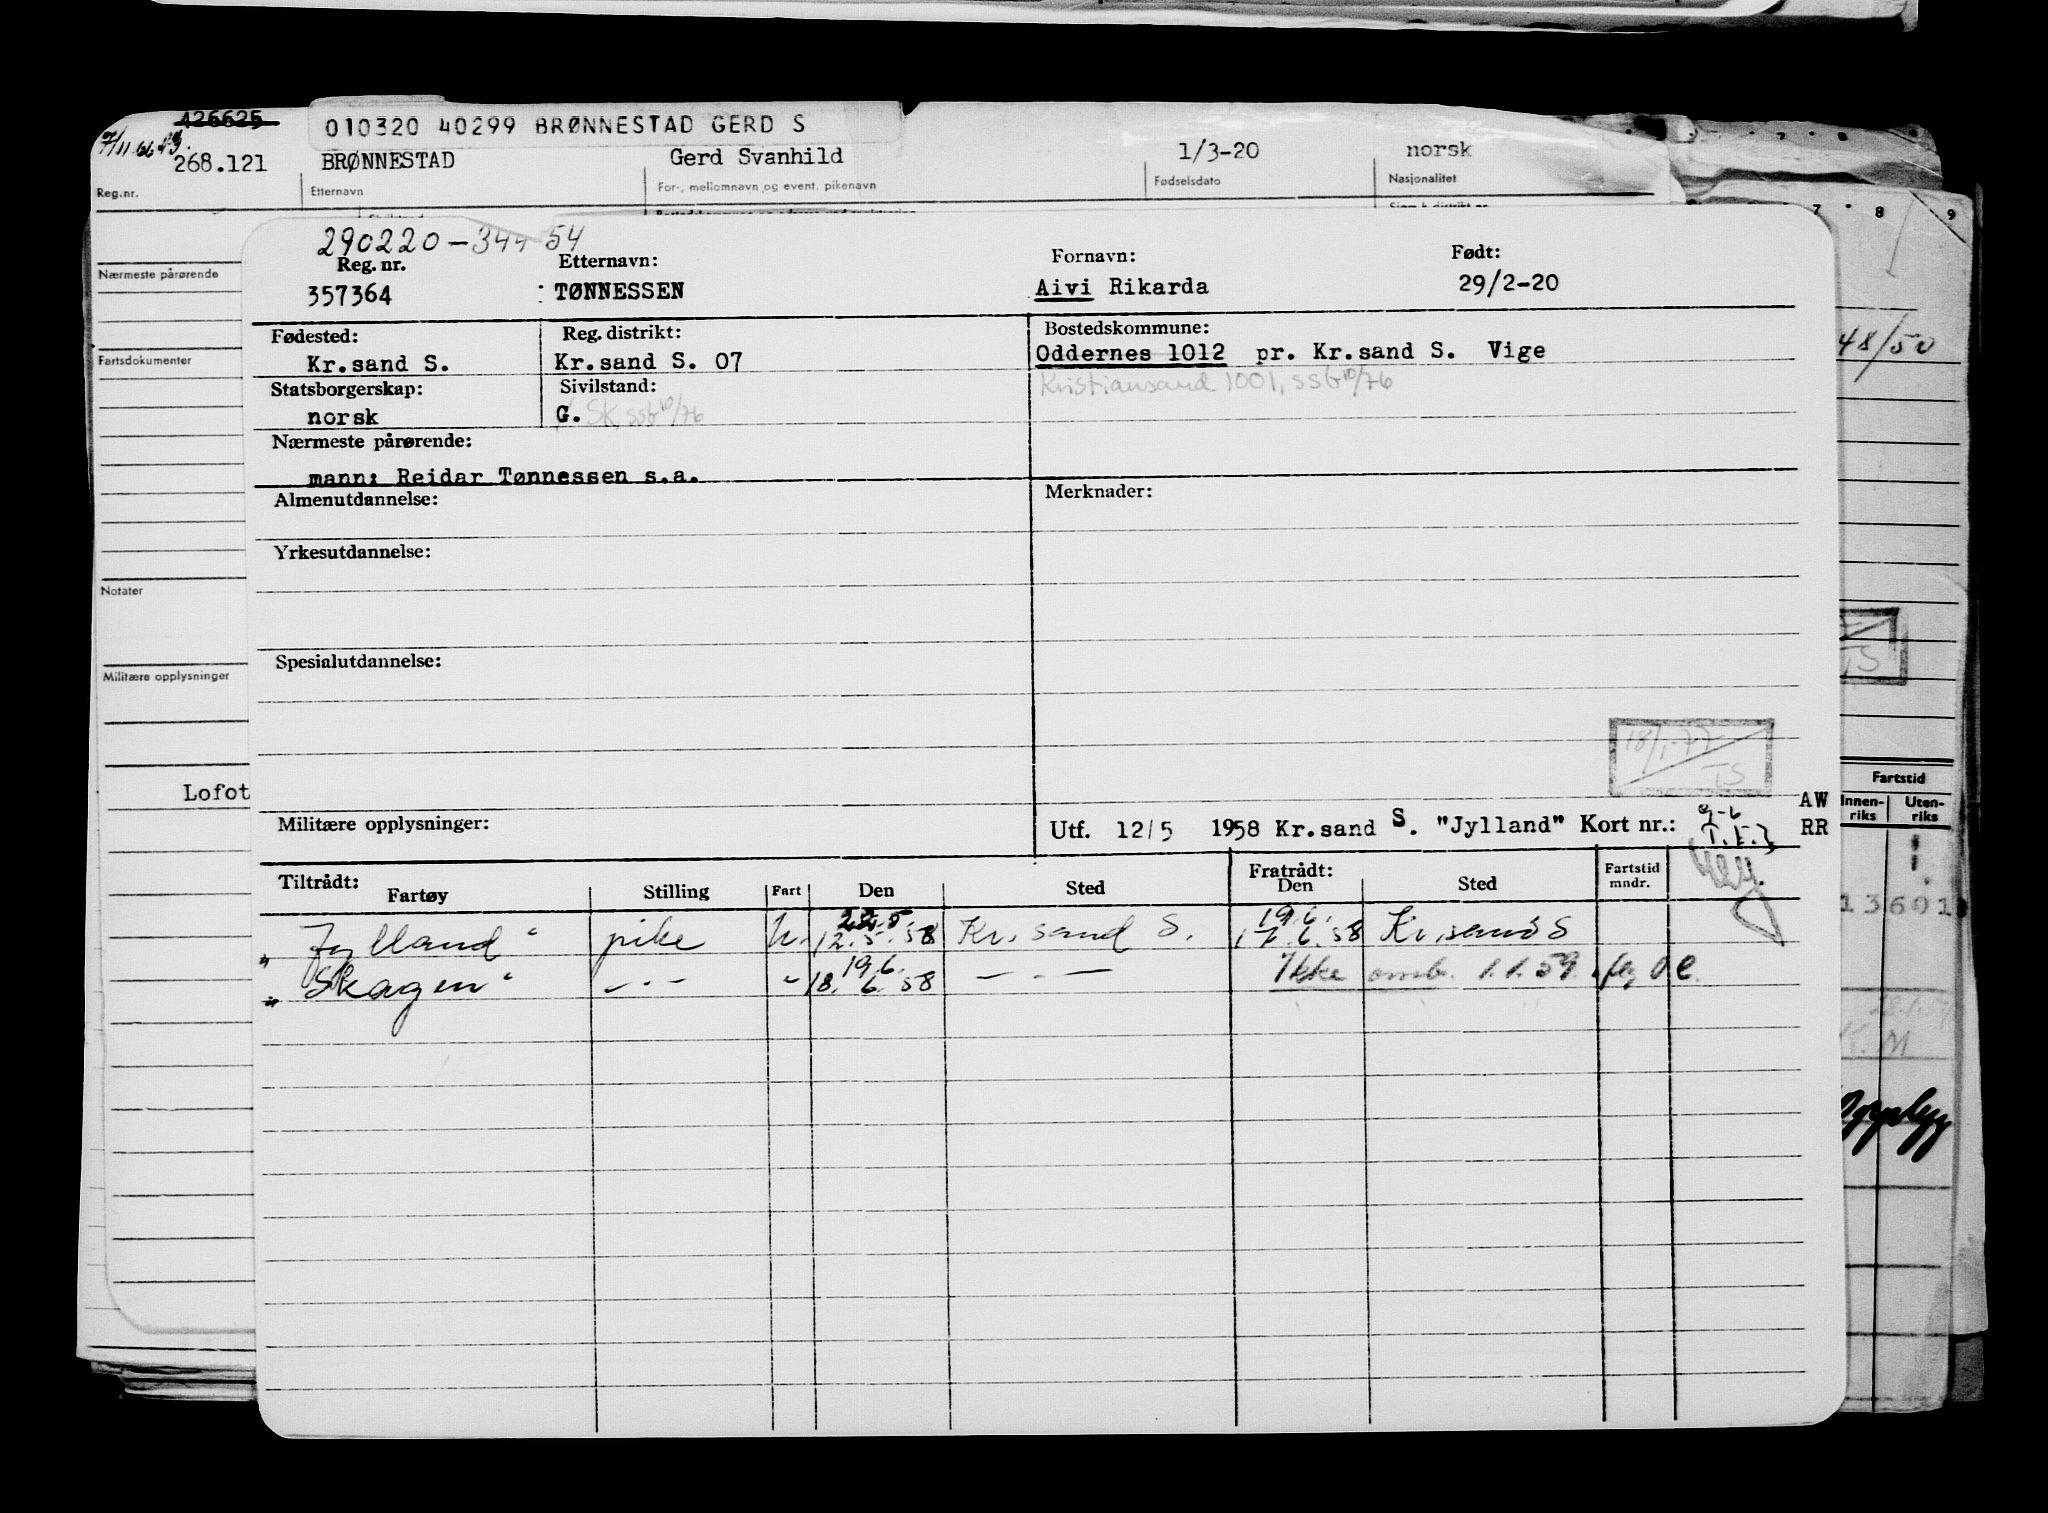 426625
010320 40299 BRØNNESTAD GERD S
7/11.66
268.121 BRØNNESTAD Gerd Svanhild 1/3-20 norsk
Reg.nr. Etternavn For-, mellomnavn og event. pikenavn Fødselsdato Nasjonalitet
7 8 9
Nærmeste pårørende
Fartsdokumenter
48/50
Notater
Militære opplysninger
Lofot
Fartstid
Innen-riks Uten-riks
13601
K. M
290220-344 54
Reg. nr. Etternavn: Fornavn: Født:
357364 TØNNESSEN Aivi Rikarda 29/2-20
Fødested: Reg. distrikt: Bostedskommune:
Kr.sand S. Kr.sand S. 07 Oddernes 1012 pr. Kr.sand S. Vige
Statsborgerskap: Sivilstand: Kristiansand 1001, SSb 10/76
norsk G. Sk, SSb 10/76
Nærmeste pårørende:
mann: Reidar Tønnessen s.a.
Almenutdannelse: Merknader:
Yrkesutdannelse:
Spesialutdannelse:
18/1-77
TS
Militære opplysninger: Utf. 12/5 1958 Kr.sand S. "Jylland" Kort nr.: AW
RR
Tiltrådt: Fratrådt:
Fartøy Stilling Fart Den Sted Den Sted Fartstid mndr.
22.5 19.6.
"Jylland" pike h. 12.5.58 Kr.sand S. 17.6.58 Kr.sand S
19.6.
"Skagen" — . — " 18.6.58 — . — Ikke omb. 1.1.59.